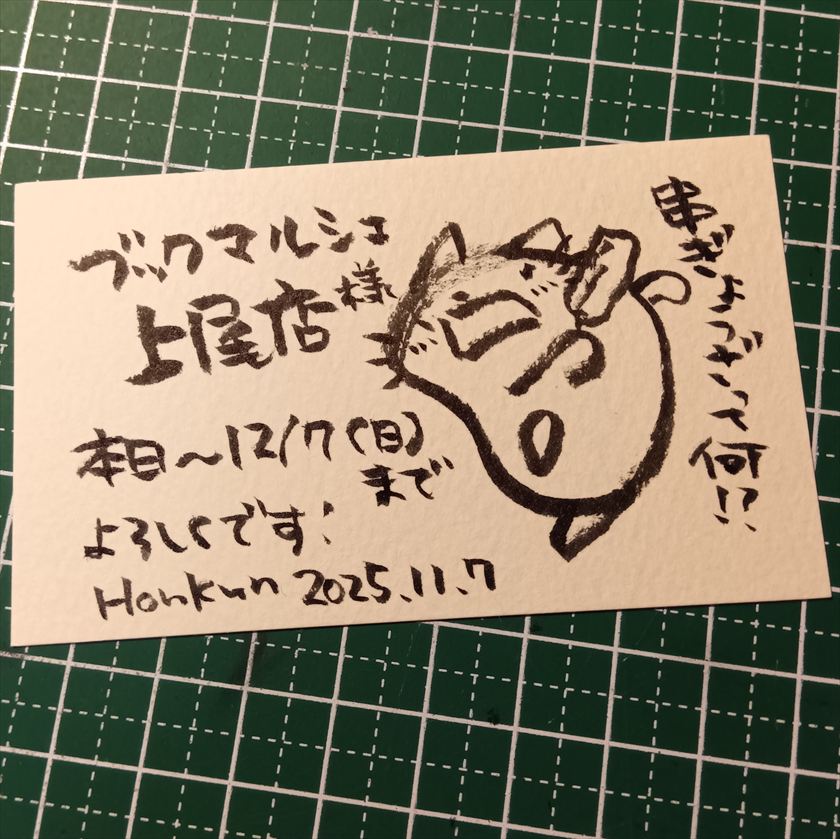 ブックマルシェ
上尾店様
本日～12/7(日)
まで
よろしくです!
Honkun 2025.11.7
串ぎょうざって何!?